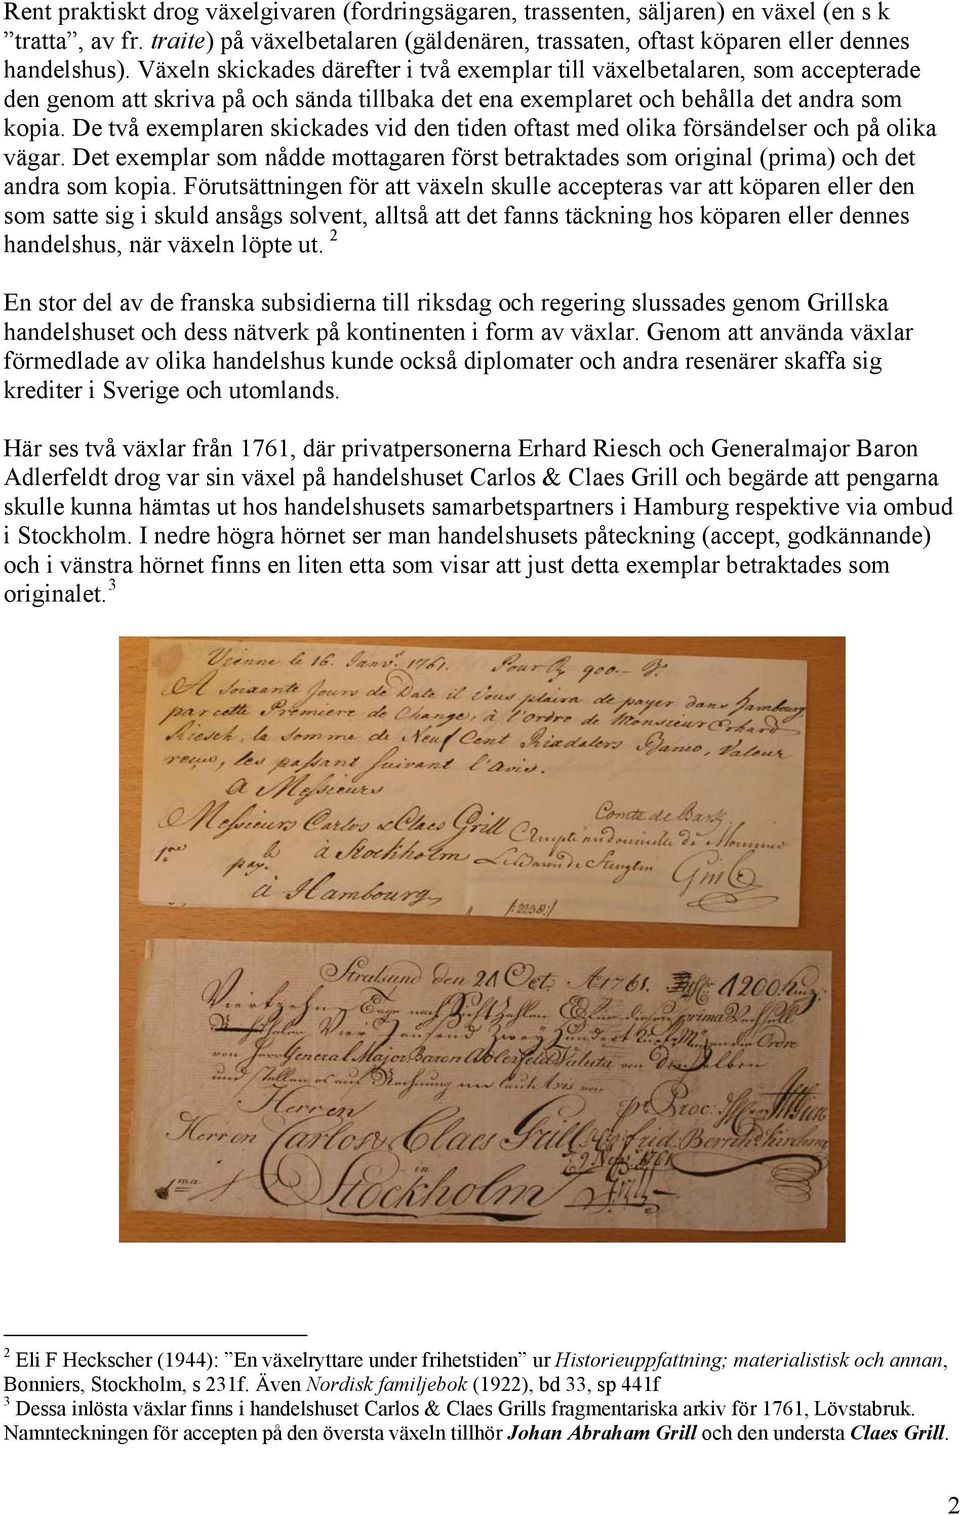 Rent praktiskt drog växelgivaren (fordringsägaren, trassenten, säljaren) en växel (en s k
”tratta”, av fr. traite) på växelbetalaren (gäldenären, trassaten, oftast köparen eller dennes
handelshus). Växeln skickades därefter i två exemplar till växelbetalaren, som accepterade
den genom att skriva på och sända tillbaka det ena exemplaret och behålla det andra som
kopia. De två exemplaren skickades vid den tiden oftast med olika försändelser och på olika
vägar. Det exemplar som nådde mottagaren först betraktades som original (prima) och det
andra som kopia. Förutsättningen för att växeln skulle accepteras var att köparen eller den
som satte sig i skuld ansågs solvent, alltså att det fanns täckning hos köparen eller dennes
handelshus, när växeln löpte ut. 2
En stor del av de franska subsidierna till riksdag och regering slussades genom Grillska
handelshuset och dess nätverk på kontinenten i form av växlar. Genom att använda växlar
förmedlade av olika handelshus kunde också diplomater och andra resenärer skaffa sig
krediter i Sverige och utomlands.
Här ses två växlar från 1761, där privatpersonerna Erhard Riesch och Generalmajor Baron
Adlerfeldt drog var sin växel på handelshuset Carlos & Claes Grill och begärde att pengarna
skulle kunna hämtas ut hos handelshusets samarbetspartners i Hamburg respektive via ombud
i Stockholm. I nedre högra hörnet ser man handelshusets påteckning (accept, godkännande)
och i vänstra hörnet finns en liten etta som visar att just detta exemplar betraktades som
originalet.3
Vienne le 16. Janv.r 1761. Pour 900.-
A Soixante Jours de Date il Vous plaira de payer dans Hambourg
par cette Premiere de Change, à l'Ordre de Monsieur Erhard
Riesch, la Somme de Neuf Cent Rixdalers Banco, Valeur
reçue, les passant suivant l'Avis.
A Messieurs
Messieurs Carlos & Claes Grill Comte de
1.re à Stockholm Le Baron de
pay.le
à Hambourg
Stralsund den 21 Oct. A 1761. 1200
Vierzehn Tage nach Sicht Zahlen
Vier Tausend Zwey Hundert Ordre
von Herrn General Major Baron Adlerfeld Valuta von Demselben
und stellen es auf Rechnung laut Avis von
Herren
Herren Carlos & Claes Grill
in
1ma Stockholm
2 Eli F Heckscher (1944): ”En växelryttare under frihetstiden” ur Historieuppfattning; materialistisk och annan,
Bonniers, Stockholm, s 231f. Även Nordisk familjebok (1922), bd 33, sp 441f
3 Dessa inlösta växlar finns i handelshuset Carlos & Claes Grills fragmentariska arkiv för 1761, Lövstabruk.
Namnteckningen för accepten på den översta växeln tillhör Johan Abraham Grill och den understa Claes Grill.
2